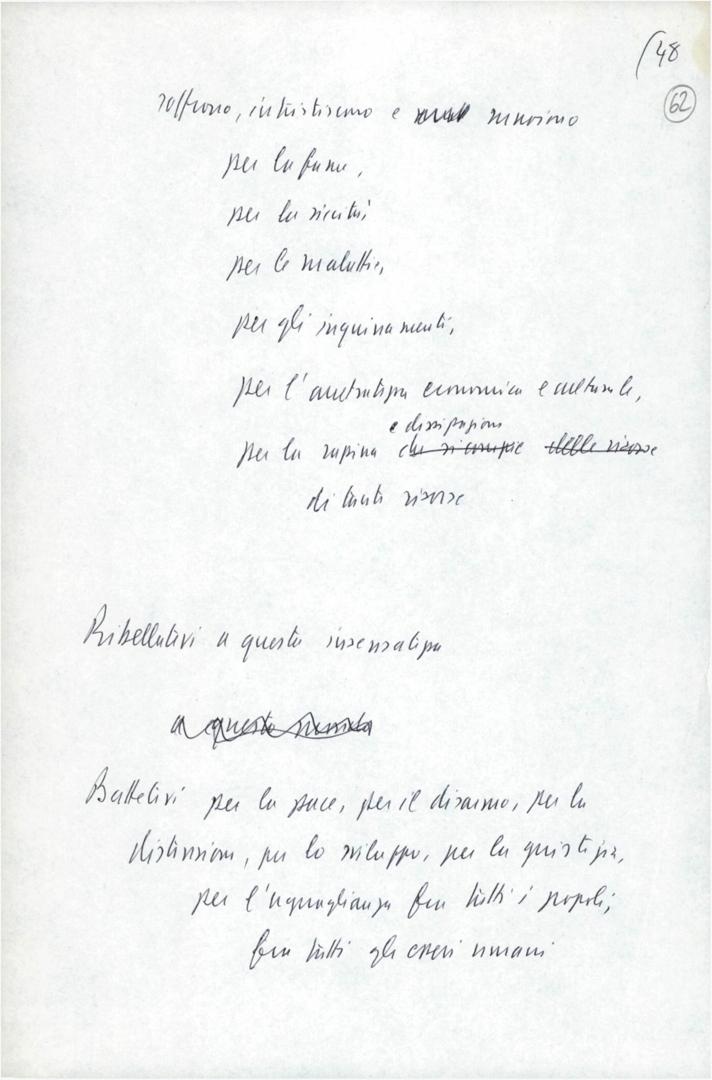 (48
62
soffrono, intristiscono e muoiono
per la fame,
per la siccità,
per le malattie,
per gli inquinamenti,
per l'arretratezza economica e culturale,
e dissipazione
per la rapina delle risorse
di tante risorse
Ribellatevi a questa insensatezza
a questa
Battetevi per la pace, per il disarmo, per la
distensione, per lo sviluppo, per la giustizia,
per l'uguaglianza fra tutti i popoli;
fra tutti gli esseri umani